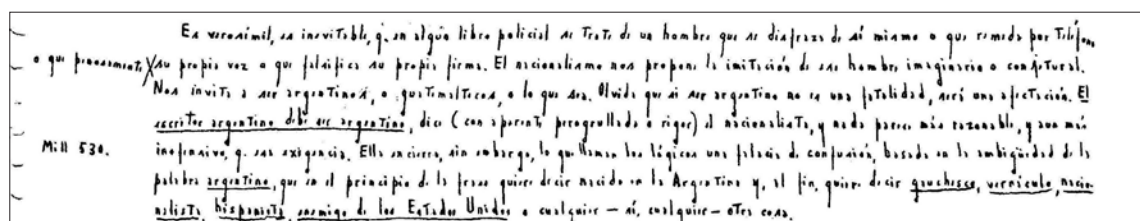 Es verosímil, es inevitable, q. en algún libro policial se trate de un hombre que se disfraza de sí mismo o que remeda por teléfono
o que penosamente su propia voz o que falsifica su propia firma. El nacionalismo nos propone la imitación de ese hombre imaginario o conjetural.
Nos invita a ser argentinos, o guatemaltecos, o lo que sea. Olvida que si ser argentino no es una fatalidad, será una afectación. El
escritor argentino debe ser argentino, dice (con aparente perogrullada o rigor) el nacionalista, y nada parece más razonable, y aun más
Mill 530. inofensivo, q. esa exigencia. Ella encierra, sin embargo, lo que llaman los lógicos una falacia de confusión, basada en la ambigüedad de la
palabra argentino, que en el principio de la frase quiere decir nacido en la Argentina y, al fin, quiere decir gauchesco, vernáculo, nacio-
nalista, hispanista, enemigo de los Estados Unidos o cualquier – sí, cualquier – otra cosa.